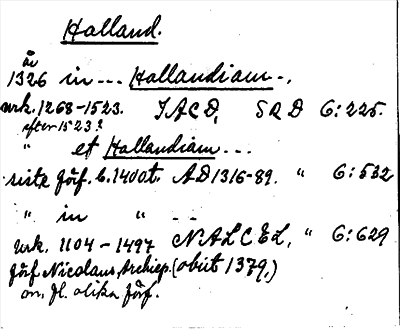 Halland.
år
1326 in --- Hallandiam --,
urk. 1268-1523. IACD, SRD 6:225.
efter 1523?
" et Hallandiam ---
siste förf. b. 1400t. AD 1316-89. " 6:532
" in " --
urk. 1104-1497 NALCEL, " 6:629
förf. Nicolaus, Archiep. (obiit 1379,)
om. fl. olika förf.